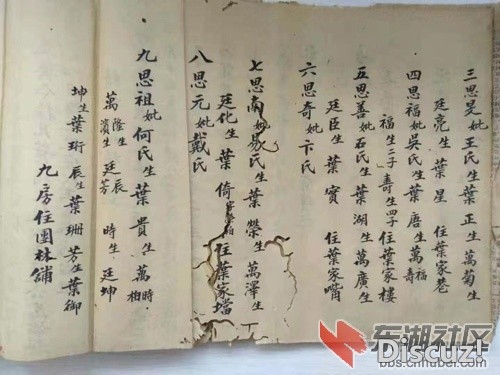 三思旻妣王氏生葉正生萬菊生
廷亮生葉星 住葉家巷
四思福妣吳氏生葉唐生萬福壽
福生二子壽生四子 住葉家樓
五思善妣石氏生葉湖生萬廣生
廷臣生葉寶 住葉家嘴
六思奇妣卞氏
七思南妣易氏生葉榮生萬澤生
廷化生葉倚 住葉家壋
八思元妣戴氏
九思祖妣何氏生葉貴生萬時相
萬隆生廷辰 濱生廷芳 時生廷坤
坤生葉珩辰生葉珊芳生葉御
九房住團林舖
东湖社区
Discuz!
bbs.cnhubei.com